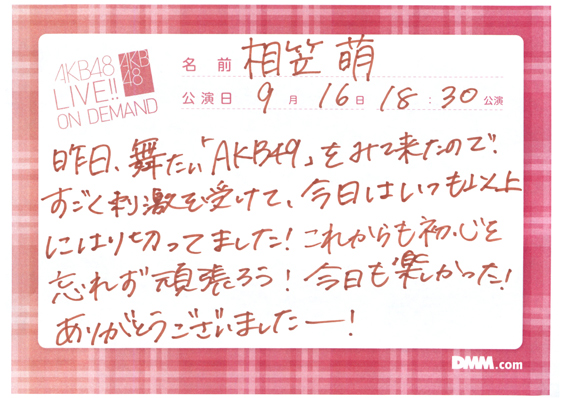 AKB48
LIVE!!
ON DEMAND
AKB
48
名前 相笠 萌
公演日 9月 16日 18:30公演
昨日、舞たい「AKB49」をみて来たので!
すごく刺激を受けて、今日はいつも以上
にはり切ってました! これからも初心を
忘れず頑張ろう! 今日も楽しかった!
ありがとうございましたー!
DMM.com